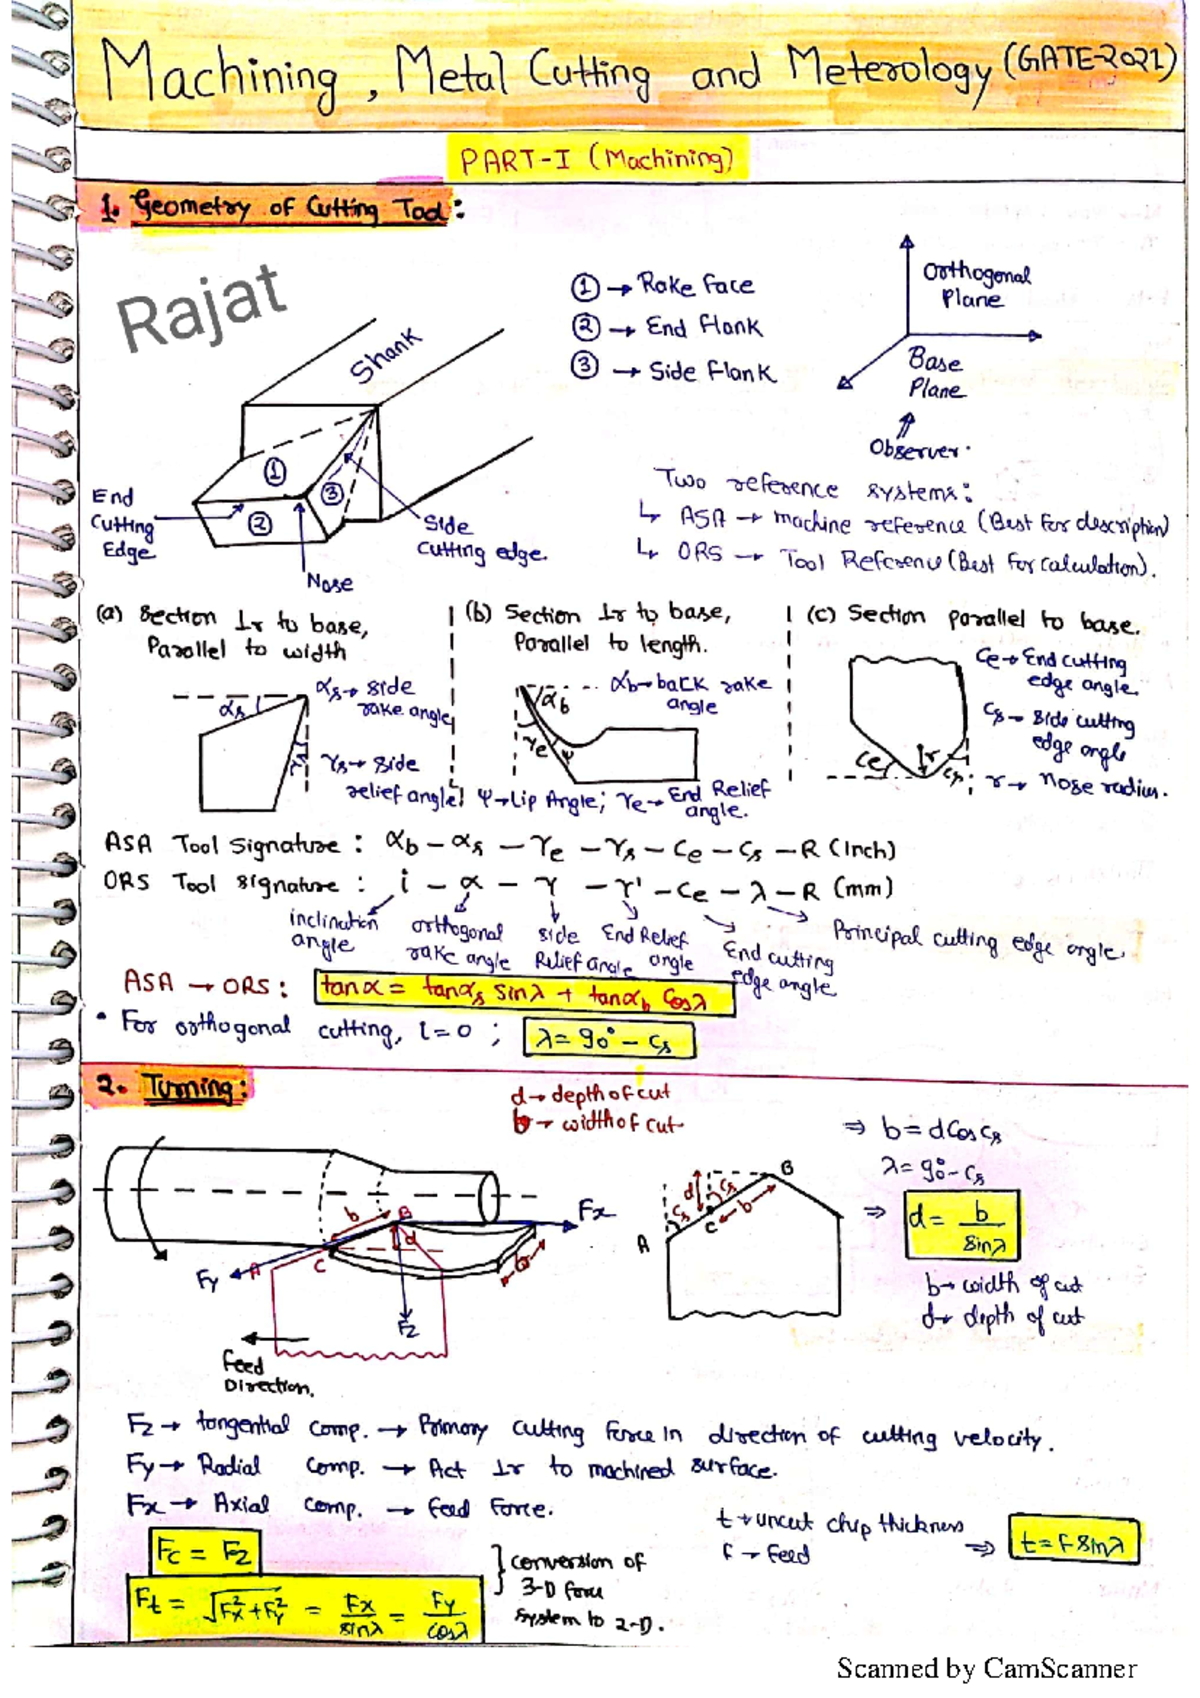 Machining, Metal Cutting and Meterology (GATE-2021)
PART-I (Machining)
1. Geometry of Cutting Tool:
Rajat
Shank
① → Rake face
② → End Flank
③ → Side Flank
Orthogonal
Plane
Base
Plane
Observer.
①
②
③
End
Cutting
Edge
Nose
Side
Cutting edge.
Two reference systems:
↳ ASA → machine reference (Best for description)
↳ ORS → Tool Reference (Best for calculation).
(a) Section ⊥r to base,
Parallel to width
αs → side
rake angle
αs
γs
γs → side
relief angle
(b) Section ⊥r to base,
Parallel to length.
αb → back rake
angle
αb
γe
ψ
ψ → Lip Angle; γe → End Relief
angle.
(c) Section parallel to base.
Ce → End cutting
edge angle
Cs → Side cutting
edge angle
r → nose radius.
Ce
r
Cs
ASA Tool Signature: αb - αs - γe - γs - Ce - Cs - R (Inch)
ORS Tool Signature: i - α - γ - γ' - Ce - λ - R (mm)
inclination
angle
orthogonal
rake angle
side
Relief angle
End Relief
angle
End cutting
edge angle
Principal cutting edge angle.
ASA → ORS: tanα = tanαs sinλ + tanαb cosλ
• For orthogonal cutting, i = 0 ; λ = 90° - Cs
2. Turning:
d → depth of cut
b → width of cut
b
B
d
A
C
b
Fx
Fy
Fz
Feed
Direction.
A
B
C
d
Cs
Cs
b
⇒ b = d cos Cs
λ = 90° - Cs
⇒ d = b / sinλ
b → width of cut
d → depth of cut
Fz → tangential comp. → Primary cutting force in direction of cutting velocity.
Fy → Radial comp. → Act ⊥r to machined surface.
Fx → Axial comp. → feed force.
Fc = Fz
Ft = √(Fx² + Fy²) = Fx / sinλ = Fy / cosλ
} conversion of
3-D force
system to 2-D.
t → uncut chip thickness
f → feed
⇒ t = f sinλ
Scanned by CamScanner